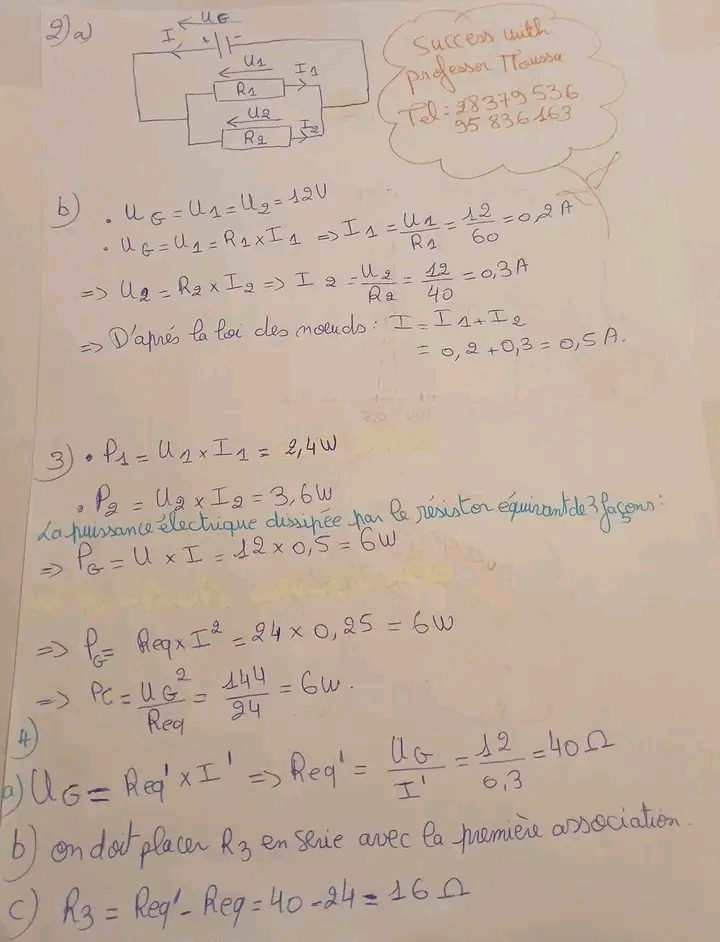 2) a)
I UG + -
U1 I1
R1
U2 I2
R2
Success with
professor Moussa
Tel: 28379536
95 836 163
b) . UG = U1 = U2 = 12V
. UG = U1 = R1 x I1 => I1 = U1/R1 = 12/60 = 0,2 A
=> U2 = R2 x I2 => I2 = U2/R2 = 12/40 = 0,3A
=> D'aprés la loi des nœuds: I = I1 + I2
= 0,2 + 0,3 = 0,5 A.
3) • P1 = U1 x I1 = 2,4W
. P2 = U2 x I2 = 3,6W
La puissance électrique dissipée par le résistor équivant de 3 façons:
=> PG = U x I = 12 x 0,5 = 6W
=> PG = Req x I² = 24 x 0,25 = 6W
=> PC = UG²/Req = 144/24 = 6W.
4)
a) UG = Req' x I' => Req' = UG/I' = 12/0,3 = 40 Ω
b) on doit placer R3 en série avec la première association.
c) R3 = Req' - Req = 40 - 24 = 16 Ω